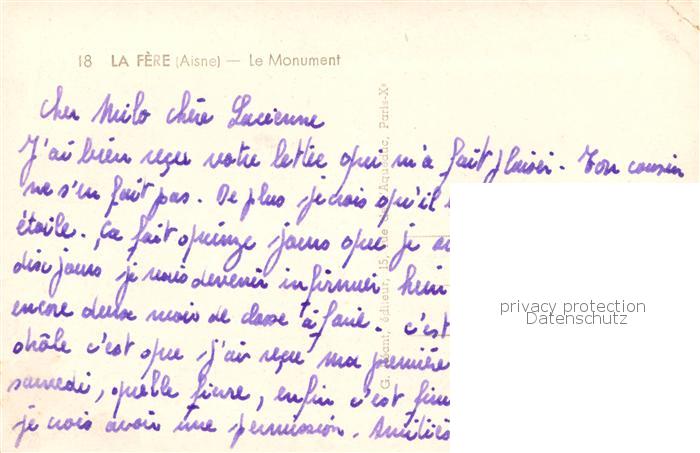 18 LA FÈRE (Aisne) — Le Monument
Cher Milo chère Lucienne
J'ai bien reçu votre lettre qui m'a fait plaisir. Ton cousin
ne s'en fait pas. De plus je crois qu'il
étoile. Ça fait quinze jours que je
dix jours je vais devenir infirmier hein
encore deux mois de classe à faire. C'est
drôle c'est que j'ai reçu ma première
samedi, quelle fièvre, enfin c'est fini
je crois avoir une permission. Amitiés
G. éditeur, 15, rue de l'Aqueduc, Paris-Xe
privacy protection
Datenschutz